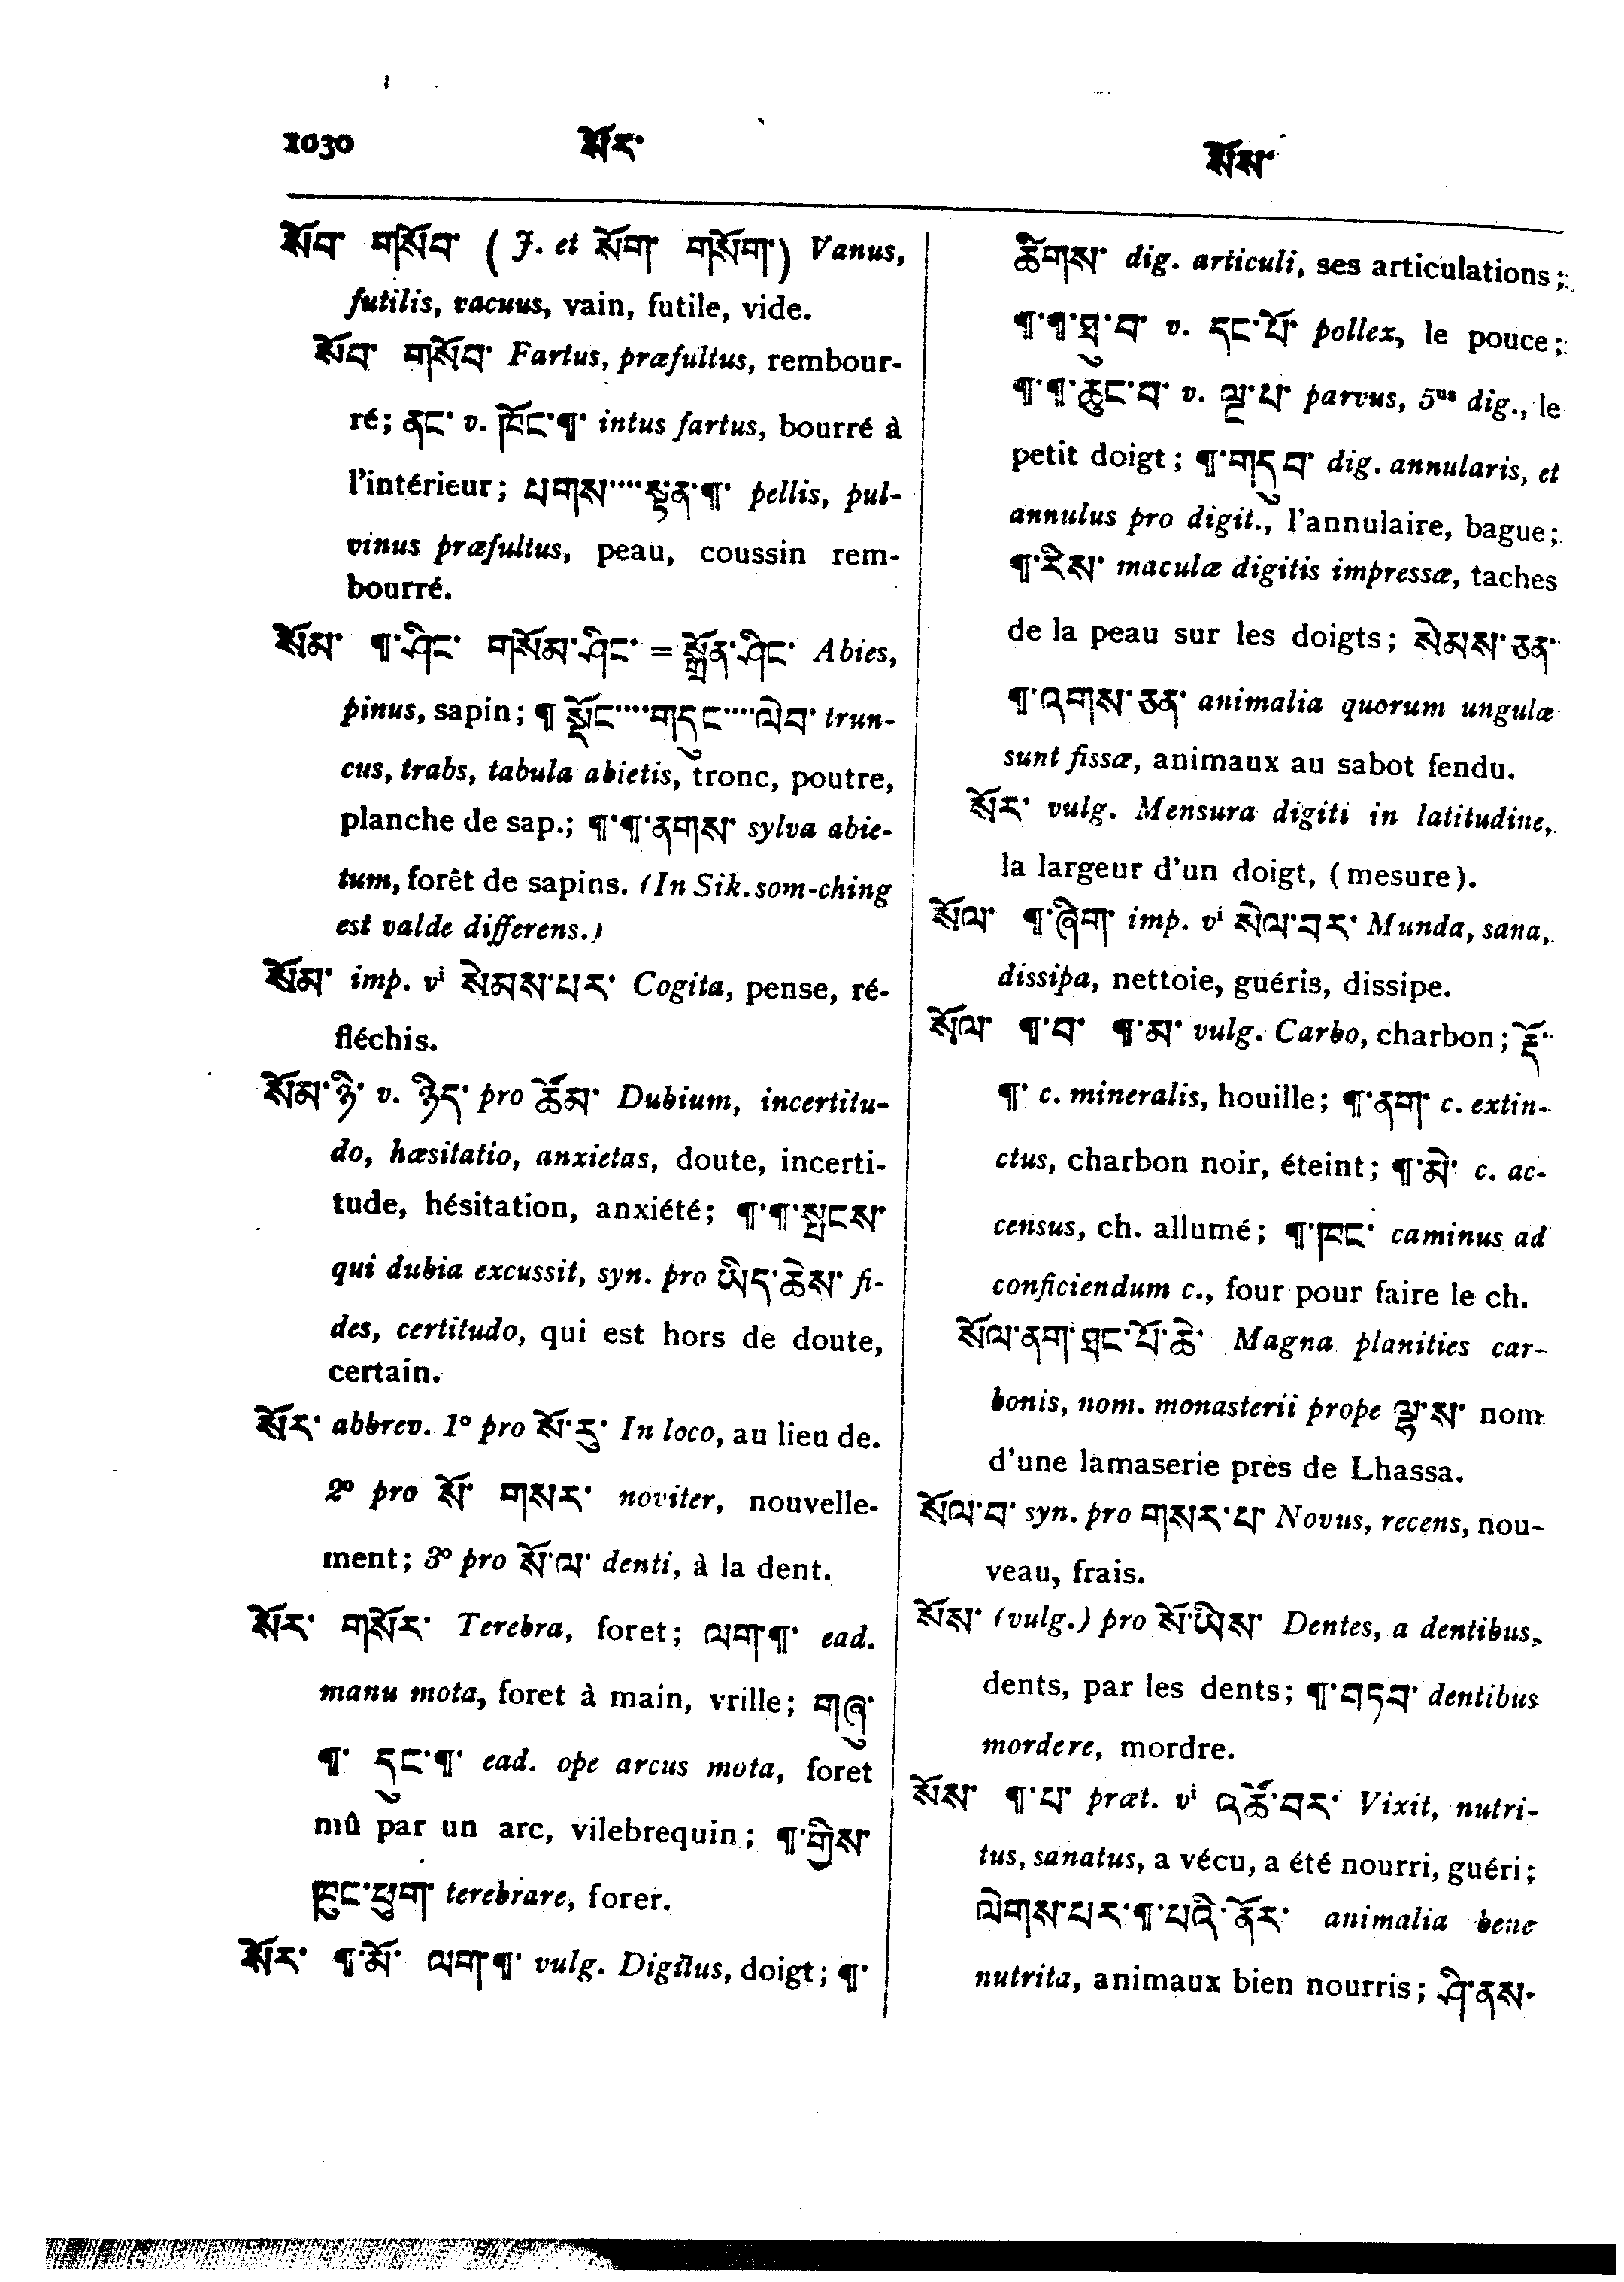 1030 སོར་ སོས་
སོབ་ གསོབ་ (J. et སོག་ གསོག་) Vanus,
futilis, vacuus, vain, futile, vide.
སོབ་ གསོབ་ Fartus, præfultus, rembour-
ré; ནང་ v. ཁོང་¶་ intus fartus, bourré à
l'intérieur; པགས་····སྟན་¶་ pellis, pul-
vinus præfultus, peau, coussin rem-
bourré.
སོམ་ ¶་ཤིང་ གསོམ་ཤིང་ = སྒྲོན་ཤིང་ Abies,
pinus, sapin; ¶ སྡོང་····གདུང་····ལེབ་ trun-
cus, trabs, tabula abietis, tronc, poutre,
planche de sap.; ¶་¶་ནགས་ sylva abie-
tum, forêt de sapins. (In Sik. som-ching
est valde differens.)
སོམ་ imp. vⁱ སེམས་པར་ Cogita, pense, ré-
fléchis.
སོམ་ཉི་ v. ཉིད་ pro ཚོམ་ Dubium, incertitu-
do, hæsitatio, anxietas, doute, incerti-
tude, hésitation, anxiété; ¶་¶་སྤངས་
qui dubia excussit, syn. pro ཡིད་ཆེས་ fi-
des, certitudo, qui est hors de doute,
certain.
སོར་ abbrev. 1° pro སོ་རུ་ In loco, au lieu de.
2° pro སོ་ གསར་ noviter, nouvelle-
ment; 3° pro སོ་ལ་ denti, à la dent.
སོར་ གསོར་ Terebra, foret; ལག་¶་ ead.
manu mota, foret à main, vrille; གཞུ་
¶་ དུང་¶་ ead. ope arcus mota, foret
mû par un arc, vilebrequin; ¶་གྱིས་
ཁུང་ཕུག་ terebrare, forer.
སོར་ ¶་མོ་ ལག་¶་ vulg. Digitus, doigt; ¶་
ཚིགས་ dig. articuli, ses articulations;
¶་¶་ཐུ་བ་ v. དང་པོ་ pollex, le pouce;
¶་¶་ཆུང་བ་ v. ལྔ་པ་ parvus, 5ᵘˢ dig., le
petit doigt; ¶་གདུབ་ dig. annularis, et
annulus pro digit., l'annulaire, bague;
¶་རིས་ maculæ digitis impressæ, taches
de la peau sur les doigts; སེམས་ཅན་
¶་འགས་ཅན་ animalia quorum ungulæ
sunt fissæ, animaux au sabot fendu.
སོར་ vulg. Mensura digiti in latitudine,
la largeur d'un doigt, (mesure).
སོལ་ ¶་ཞིག་ imp. vⁱ སེལ་བར་ Munda, sana,
dissipa, nettoie, guéris, dissipe.
སོལ་ ¶་བ་ ¶་མ་ vulg. Carbo, charbon; རྡོ་
¶་ c. mineralis, houille; ¶་ནག་ c. extin-
ctus, charbon noir, éteint; ¶་མེ་ c. ac-
census, ch. allumé; ¶་ཁང་ caminus ad
conficiendum c., four pour faire le ch.
སོལ་ནག་ཐང་པོ་ཆེ་ Magna planities car-
bonis, nom. monasterii prope ལྷ་ས་ nom
d'une lamaserie près de Lhassa.
སོལ་བ་ syn. pro གསར་པ་ Novus, recens, nou-
veau, frais.
སོས་ (vulg.) pro སོ་ཡིས་ Dentes, a dentibus,
dents, par les dents; ¶་བཏབ་ dentibus
mordere, mordre.
སོས་ ¶་པ་ præt. vⁱ འཚོ་བར་ Vixit, nutri-
tus, sanatus, a vécu, a été nourri, guéri;
ལེགས་པར་¶་པའི་ནོར་ animalia bene
nutrita, animaux bien nourris; ཤི་ནས་